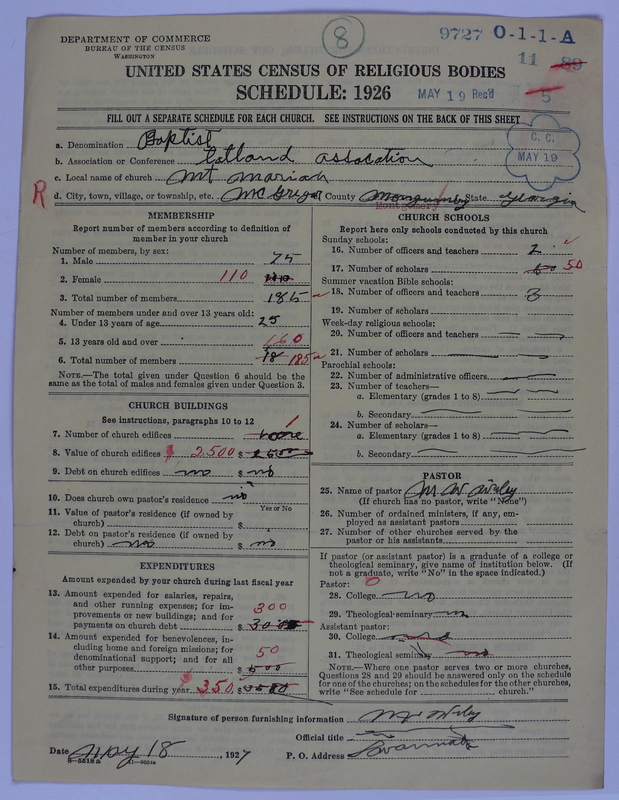 8
9727 O-1-1-A
11 89
5
DEPARTMENT OF COMMERCE
BUREAU OF THE CENSUS
WASHINGTON
UNITED STATES CENSUS OF RELIGIOUS BODIES
SCHEDULE: 1926
MAY 19 Rec'd
FILL OUT A SEPARATE SCHEDULE FOR EACH CHURCH. SEE INSTRUCTIONS ON THE BACK OF THIS SHEET
C. C.
MAY 19
a. Denomination Baptist
b. Association or Conference assocation
c. Local name of church Mt Mariah
R
d. City, town, village, or township, etc. McGregor County Montgomery State Georgia
MEMBERSHIP
Report number of members according to definition of member in your church
Number of members, by sex:
1. Male 75
2. Female 110
3. Total number of members 185
Number of members under and over 13 years old:
4. Under 13 years of age 25
5. 13 years old and over 160
6. Total number of members 18 185
NOTE.—The total given under Question 6 should be the same as the total of males and females given under Question 3.
CHURCH BUILDINGS
See instructions, paragraphs 10 to 12
7. Number of church edifices
8. Value of church edifices $ 2,500 $ 2500
9. Debt on church edifices no $ no
10. Does church own pastor's residence no
Yes or No
11. Value of pastor's residence (if owned by church) $
12. Debt on pastor's residence (if owned by church) no $ no
EXPENDITURES
Amount expended by your church during last fiscal year
13. Amount expended for salaries, repairs, and other running expenses; for improvements or new buildings; and for payments on church debt 300 $
14. Amount expended for benevolences, including home and foreign missions; for denominational support; and for all other purposes 50 $
15. Total expenditures during year 350 $
CHURCH SCHOOLS
Report here only schools conducted by this church
Sunday schools:
16. Number of officers and teachers 2
17. Number of scholars 50
Summer vacation Bible schools:
18. Number of officers and teachers 3
19. Number of scholars
Week-day religious schools:
20. Number of officers and teachers
21. Number of scholars
Parochial schools:
22. Number of administrative officers
23. Number of teachers—
a. Elementary (grades 1 to 8)
b. Secondary
24. Number of scholars—
a. Elementary (grades 1 to 8)
b. Secondary
PASTOR
25. Name of pastor
(If church has no pastor, write "None")
26. Number of ordained ministers, if any, employed as assistant pastors
27. Number of other churches served by the pastor or his assistants
If pastor (or assistant pastor) is a graduate of a college or theological seminary, give name of institution below. (If not a graduate, write "No" in the space indicated.)
Pastor: 0
28. College no
29. Theological seminary no
Assistant pastor:
30. College no
31. Theological seminary no
NOTE.—Where one pastor serves two or more churches, Questions 28 and 29 should be answered only on the schedule for one of the churches; on the schedules for the other churches, write "See schedule for church."
Signature of person furnishing information
Official title
Date May 18, 1927
P. O. Address
8-5518a 11-9024a